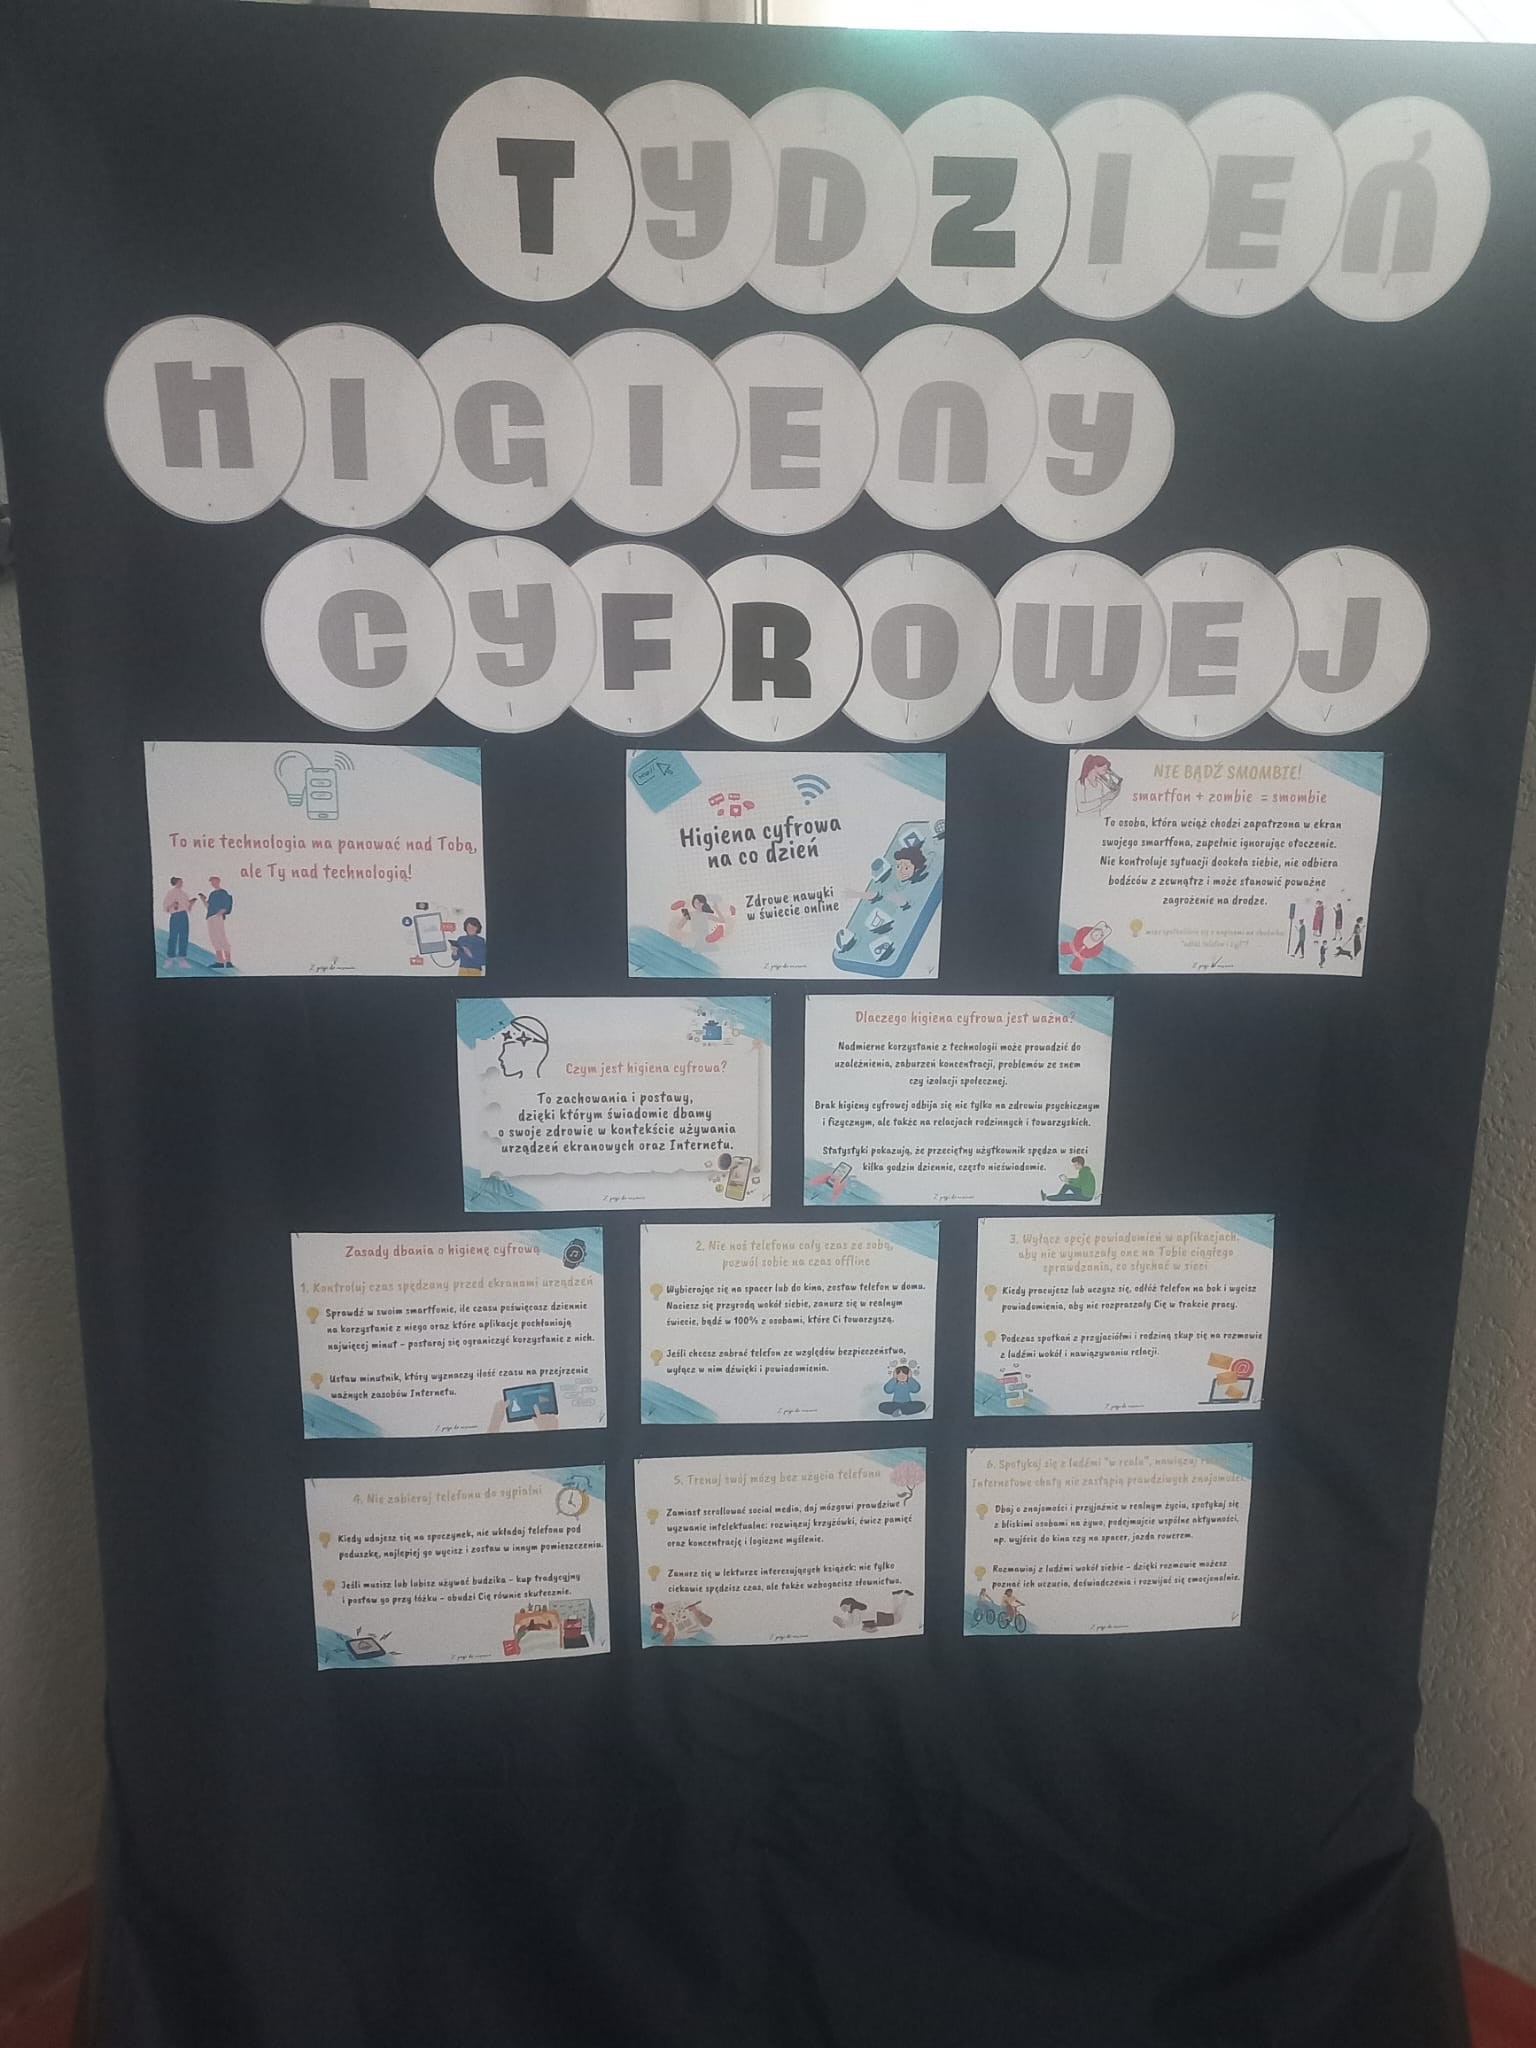 TYDZIEŃ
HIGIENY
CYFROWEJ
To nie technologia ma panować nad Tobą,
ale Ty nad technologią!
Higiena cyfrowa
na co dzień
Zdrowe nawyki
w świecie online
NIE BĄDŹ SMOMBIE!
smartfon + zombie = smombie
To osoba, która wciąż chodzi zapatrzona w ekran
swojego smartfona, zupełnie ignorując otoczenie.
Nie kontroluje sytuacji dookoła siebie, nie odbiera
bodźców z zewnątrz i może stanowić poważne
zagrożenie na drodze.
Czym jest higiena cyfrowa?
To zachowania i postawy,
dzięki którym świadomie dbamy
o swoje zdrowie w kontekście używania
urządzeń ekranowych oraz Internetu.
Dlaczego higiena cyfrowa jest ważna?
Nadmierne korzystanie z technologii może prowadzić do
uzależnienia, zaburzeń koncentracji, problemów ze snem
czy izolacji społecznej.
Brak higieny cyfrowej odbija się nie tylko na zdrowiu psychicznym
i fizycznym, ale także na relacjach rodzinnych i towarzyskich.
Statystyki pokazują, że przeciętny użytkownik spędza w sieci
kilka godzin dziennie, często nieświadomie.
Zasady dbania o higienę cyfrową
1. Kontroluj czas spędzany przed ekranami urządzeń
Sprawdź w swoim smartfonie, ile czasu poświęcasz dziennie
na korzystanie z niego oraz które aplikacje pochłaniają
najwięcej minut – postaraj się ograniczyć korzystanie z nich.
Ustaw minutnik, który wyznaczy ilość czasu na przejrzenie
ważnych zasobów Internetu.
2. Nie noś telefonu cały czas ze sobą,
pozwól sobie na czas offline
Wybierając się na spacer lub do kina, zostaw telefon w domu.
Naciesz się przyrodą wokół siebie, zanurz się w realnym
świecie, bądź w 100% z osobami, które Ci towarzyszą.
Jeśli chcesz zabrać telefon ze względów bezpieczeństwa,
wyłącz w nim dźwięki i powiadomienia.
3. Wyłącz opcję powiadomień w aplikacjach,
aby nie wymuszały one na Tobie ciągłego
sprawdzania, co słychać w sieci
Kiedy pracujesz lub uczysz się, odłóż telefon na bok i wycisz
powiadomienia, aby nie rozpraszały Cię w trakcie pracy.
Podczas spotkań z przyjaciółmi i rodziną skup się na rozmowie
z ludźmi wokół i nawiązywaniu relacji.
4. Nie zabieraj telefonu do sypialni
Kiedy udajesz się na spoczynek, nie wkładaj telefonu pod
poduszkę, najlepiej go wycisz i zostaw w innym pomieszczeniu.
Jeśli musisz lub lubisz używać budzika – kup tradycyjny
i postaw go przy łóżku – obudzi Cię równie skutecznie.
5. Trenuj swój mózg bez użycia telefonu
Zamiast scrollować social media, daj mózgowi prawdziwe
wyzwanie intelektualne: rozwiązuj krzyżówki, ćwicz pamięć
oraz koncentrację i logiczne myślenie.
Zanurz się w lekturze interesujących książek: nie tylko
ciekawie spędzisz czas, ale także wzbogacisz słownictwo.
6. Spotykaj się z ludźmi "w realu", nawiązuj
Internetowe chaty nie zastąpią prawdziwych znajomości
Dbaj o znajomości i przyjaźnie w realnym życiu, spotykaj się
z bliskimi osobami na żywo, podejmujcie wspólne aktywności,
np. wyjście do kina czy na spacer, jazda rowerem.
Rozmawiaj z ludźmi wokół siebie – dzięki rozmowie możesz
poznać ich uczucia, doświadczenia i rozwijać się emocjonalnie.